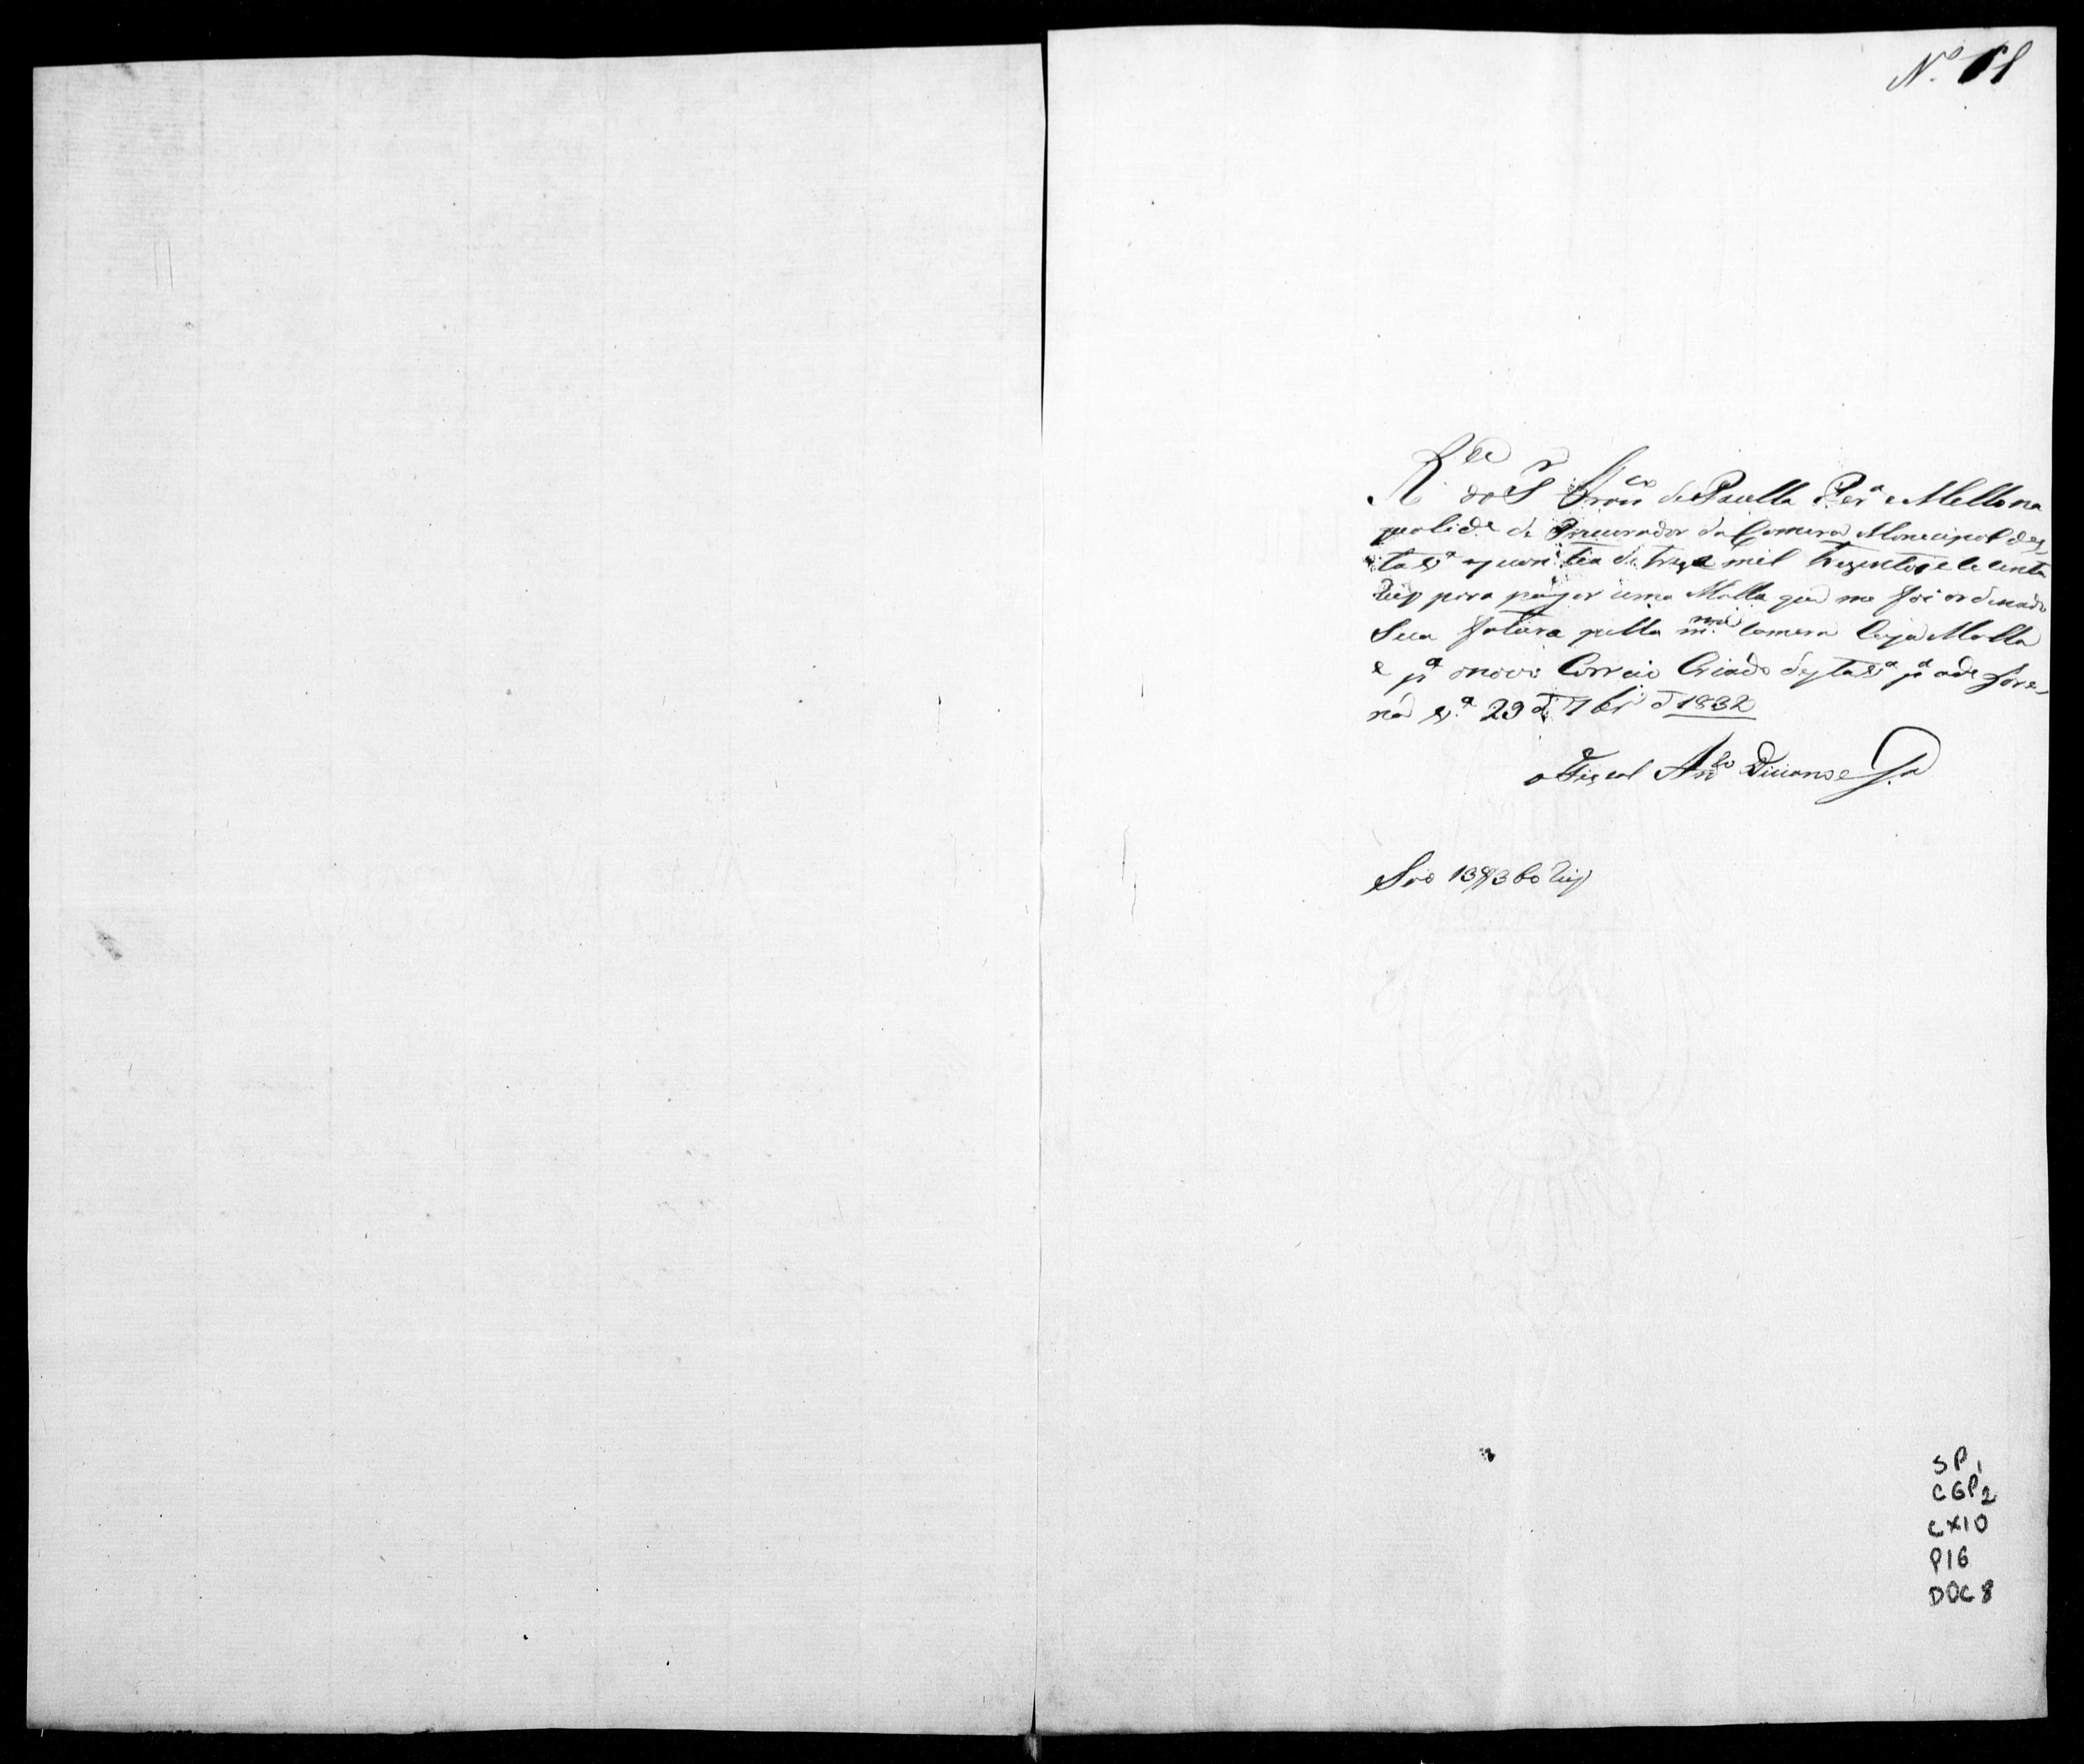 Nº 68
R.ce do Sr Franco de Paulla Per.a e Mello na
qualid.e de Procurador da Camera Monecipal des
ta V.a a quantia de treze mil trezentos e secenta
reis para pagar uma Malla que me foi ordenado
Sua fatura pella m.ma Camera Cuja Malla
e p.a o novo Correio Criado desta V.a p.a a de
V.a 29 de 7br.o d 1832
o Fiscal Anto
São 13$360 reis
SP1
CGP2
CX10
P16
DOC 8